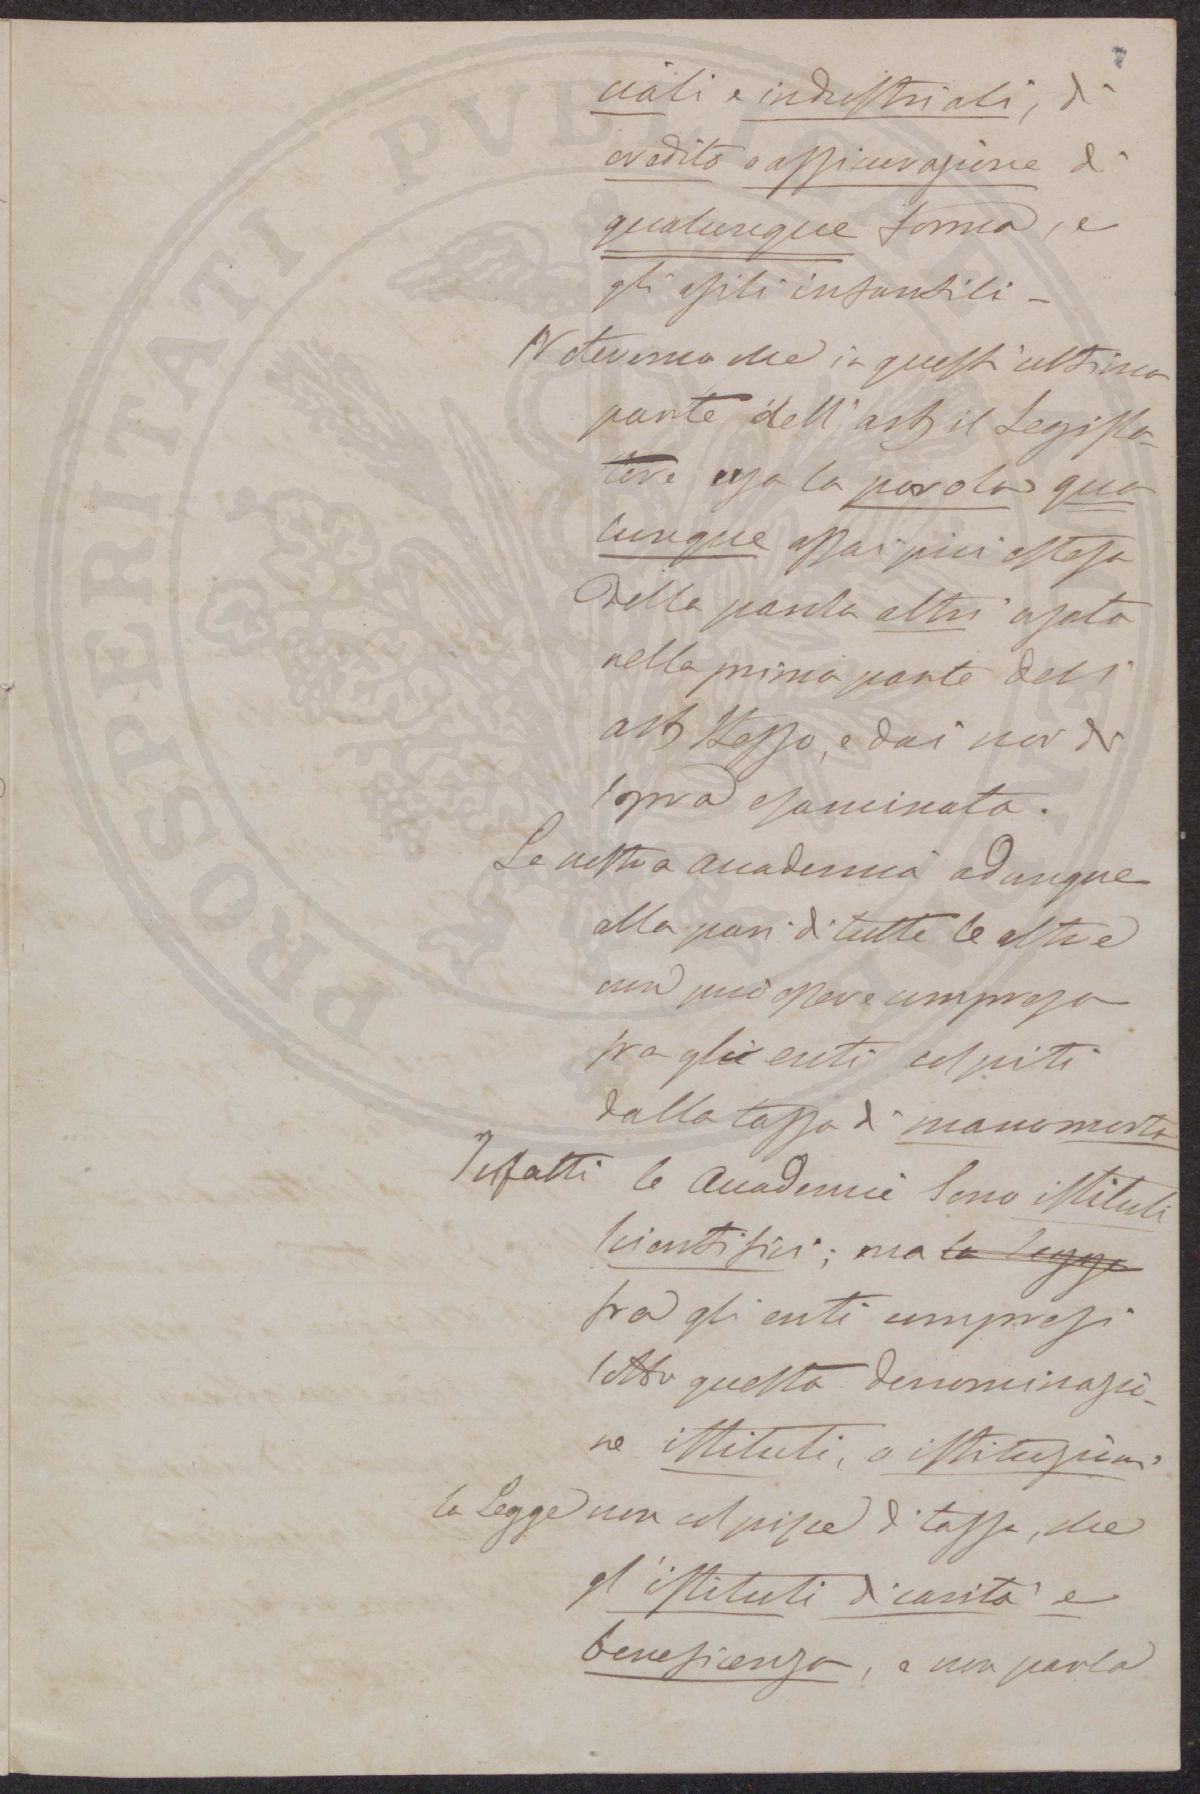 7
ciali e industriali, di
credito o assicurazione di
qualunque forma, e
gli asili infantili -
Noteremo che in quest'ultima
parte dell'art. il Legisla-
tore usa la parola qua
lunque assai più estesa
della parola altri usata
nella prima parte dell'
art. stesso, e da noi di
sopra esaminata.
La nostra Accademia adunque
alla pari di tutte le altre
non può essere compresa
fra gli enti colpiti
dalla tassa di manomorta
Infatti le Accademie sono istituti
scientifici; ma la legge
fra gli enti compresi
sotto questa denominazio-
ne istituti, o istituzioni
la Legge non colpisce di tassa, che
gl'istituti di carità e
beneficenza, e non parla
PROSPERITATI PVBLICAE